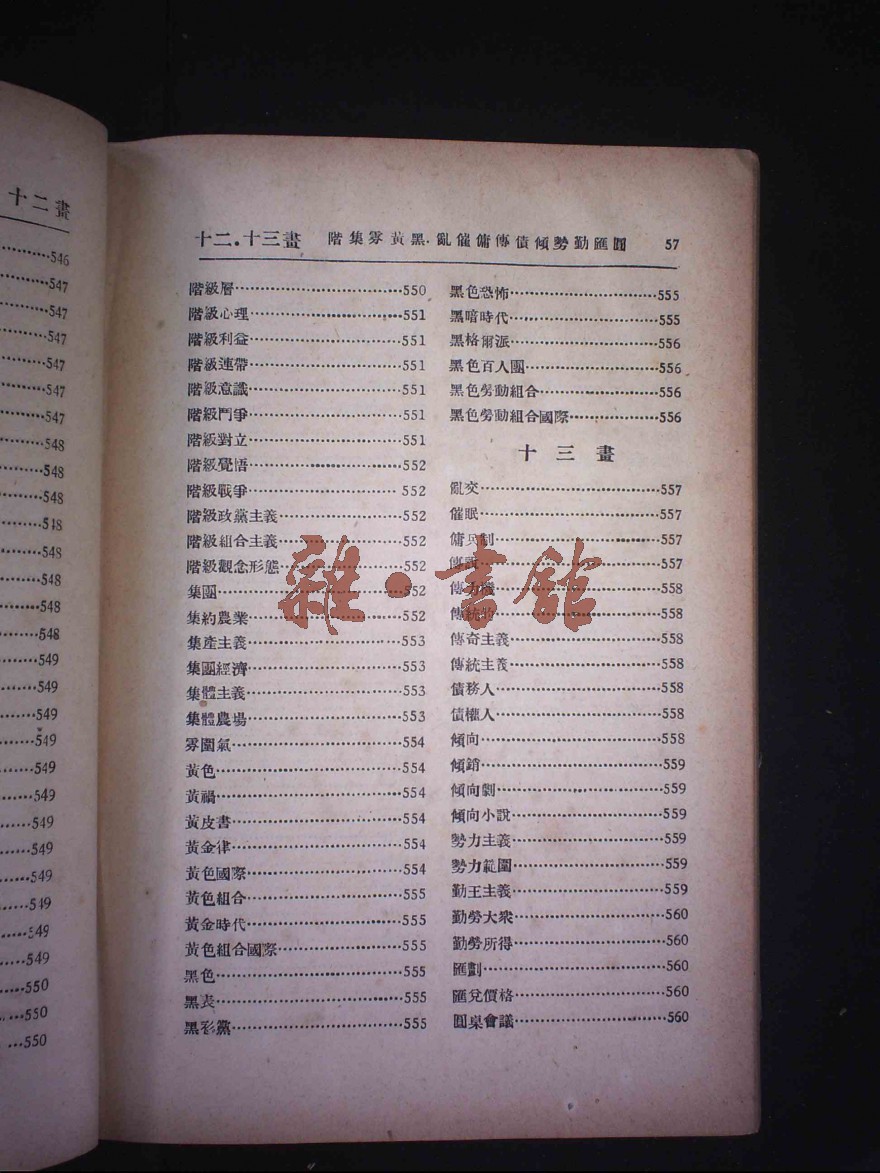 十二畫
546
547
547
547
547
547
547
548
548
548
548
548
548
548
548
549
549
549
549
549
549
549
549
549
549
549
549
550
550
550
十二．十三畫 階集雰黃黑．亂催傭傳債傾勢勤匯圓 57
階級層……550
階級心理……551
階級利益……551
階級連帶……551
階級意識……551
階級鬥爭……551
階級對立……551
階級覺悟……552
階級戰爭……552
階級政黨主義……552
階級組合主義……552
階級觀念形態……552
集團……552
集約農業……552
集產主義……553
集團經濟……553
集體主義……553
集體農場……553
雰圍氣……554
黃色……554
黃禍……554
黃皮書……554
黃金律……554
黃色國際……554
黃色組合……555
黃金時代……555
黃色組合國際……555
黑色……555
黑表……555
黑衫黨……555
黑色恐怖……555
黑暗時代……555
黑格爾派……556
黑色百人團……556
黑色勞動組合……556
黑色勞動組合國際……556
十三畫
亂交……557
催眠……557
傭兵制……557
傳說……557
傳力機……558
傳統……558
傳奇主義……558
傳統主義……558
債務人……558
債權人……558
傾向……558
傾銷……559
傾向劇……559
傾向小說……559
勢力主義……559
勢力範圍……559
勤王主義……559
勤勞大衆……560
勤勞所得……560
匯劃……560
匯兌價格……560
圓桌會議……560
雜·書館